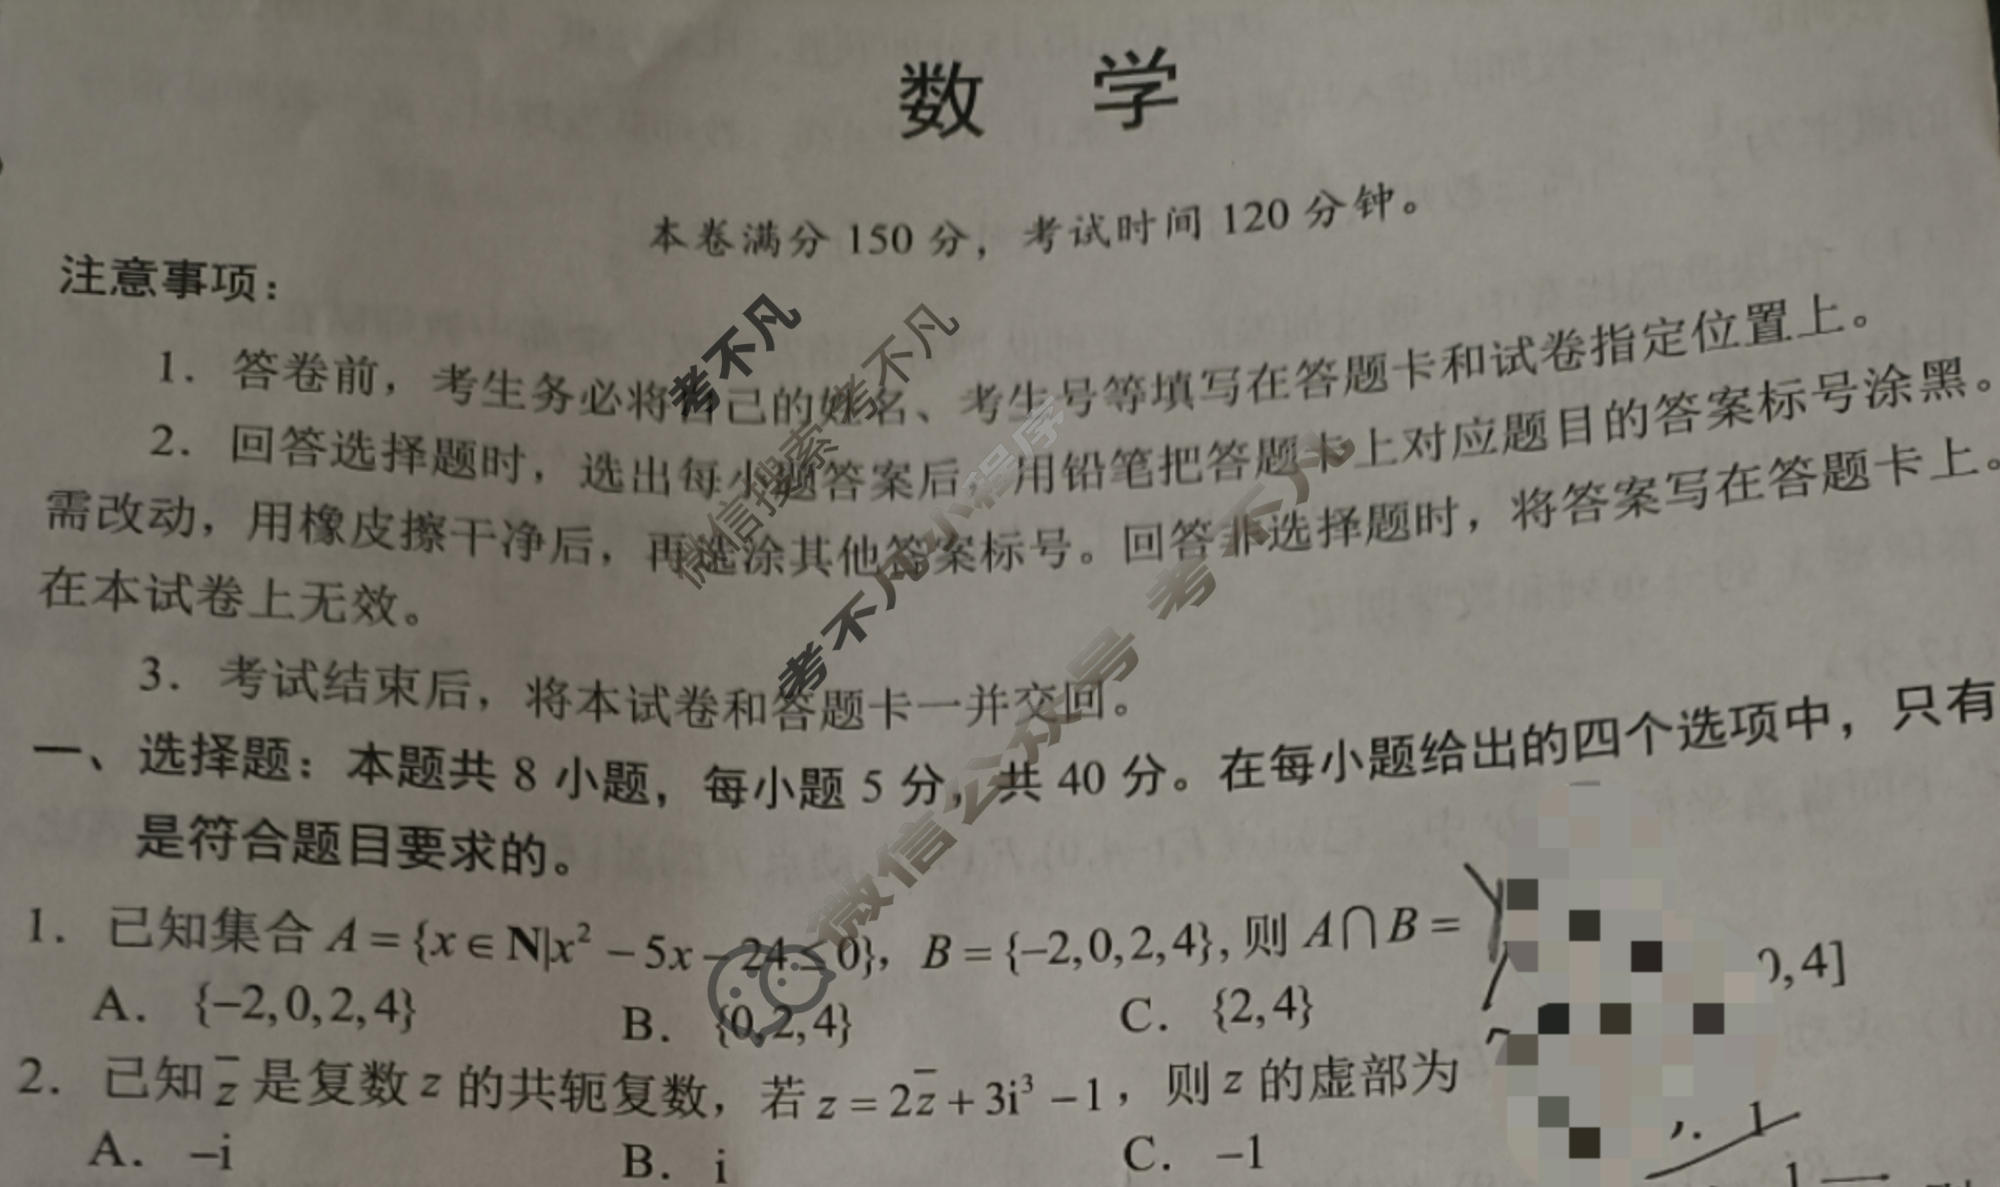 数 学
本卷满分 150 分，考试时间 120 分钟。
注意事项：
1．答卷前，考生务必将自己的姓名、考生号等填写在答题卡和试卷指定位置上。
2．回答选择题时，选出每小题答案后，用铅笔把答题卡上对应题目的答案标号涂黑。
需改动，用橡皮擦干净后，再选涂其他答案标号。回答非选择题时，将答案写在答题卡上。
在本试卷上无效。
3．考试结束后，将本试卷和答题卡一并交回。
一、选择题：本题共 8 小题，每小题 5 分，共 40 分。在每小题给出的四个选项中，只有
是符合题目要求的。
1．已知集合 A = {x∈N|x² − 5x − 24 ≤ 0}，B = {−2,0,2,4}，则 A∩B =
A． {−2,0,2,4} B． {0,2,4} C． {2,4} 0,4]
2．已知 z̄ 是复数 z 的共轭复数，若 z = 2z̄ + 3i³ − 1，则 z 的虚部为
A． −i B． i C． −1 ． 1
考不凡
微信搜索 考不凡
考不凡小程序
微信公众号 考不凡